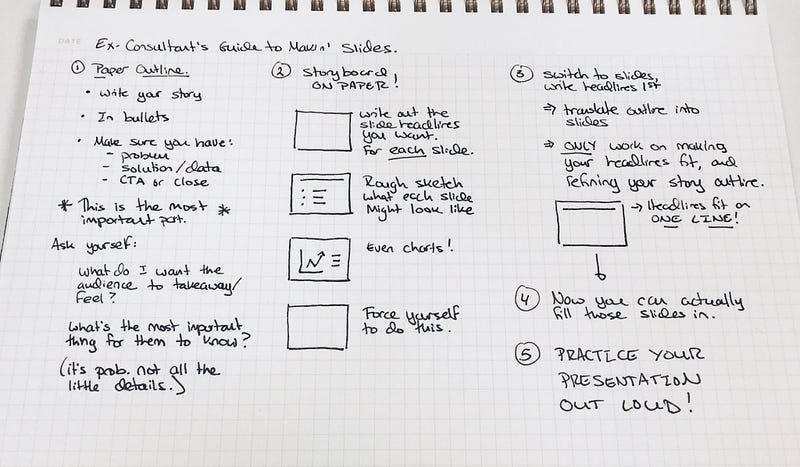 DATE
Ex-Consultant's Guide to Makin' Slides.
① Paper Outline.
• Write your story
• In bullets
• Make sure you have:
- problem
- solution/data
- CTA or close
* This is the most *
important part.
Ask yourself:
What do I want the
audience to takeaway/
feel?
What's the most important
thing for them to know?
(it's prob. not all the
little details.)
② Storyboard
ON PAPER!
Write out the
slide headlines
you want.
For each slide.
Rough sketch
what each slide
might look like
Even charts!
Force yourself
to do this.
③ Switch to slides,
write headlines 1st
⇒ translate outline into
slides
⇒ ONLY work on making
your headlines fit, and
refining your story outline.
→ Headlines fit on
ONE LINE!
④ Now you can actually
fill those slides in.
⑤ PRACTICE YOUR
PRESENTATION
OUT LOUD!